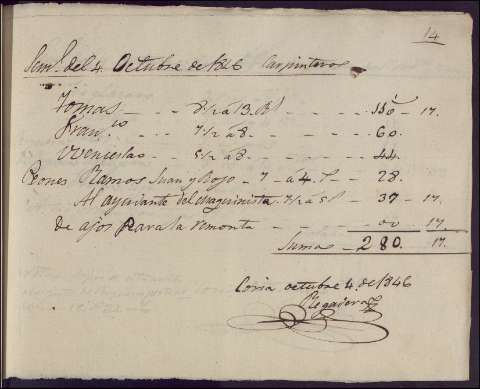 14
Sem.ª del 4 Octubre de 1846 Carpinteros
Tomas - - - 8 1/2 a 13. R.s - - - 110 - 17.
Fran.co - - - 7 1/2 a 8. - - - 60.
Wenceslao - - 5 1/2 a 8. - - - 44.
Peones Ramos Juan y Rojo - 7 - a 4. - 28.
Al ayudante del Maquinista 7 1/2 a 5 - 37 - 17.
de ajos para la remonta - - - 00 17
Suma - 280. 17.
Coria octubre 4. de 1846